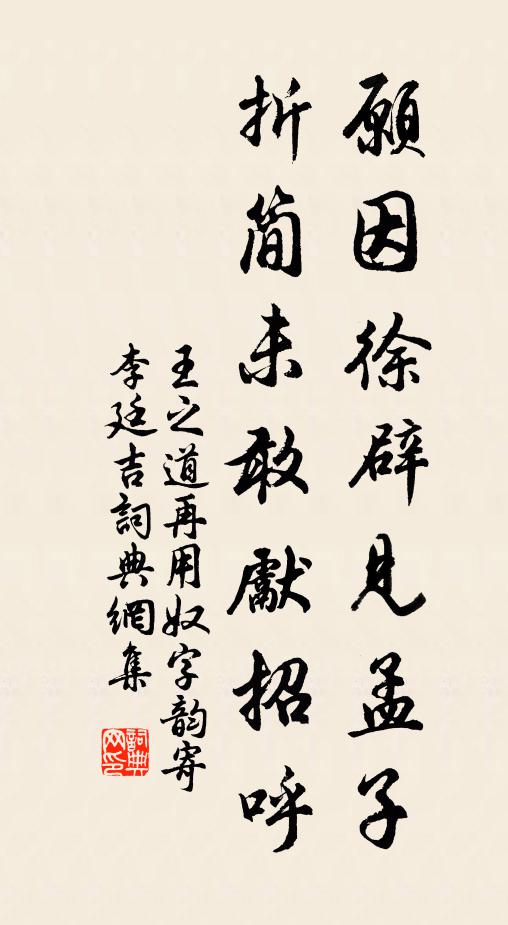 願因徐辟見孟子
折简未敢獻招呼
王之道再用奴字韵寄
李廷吉詞典網集
詞典
网印